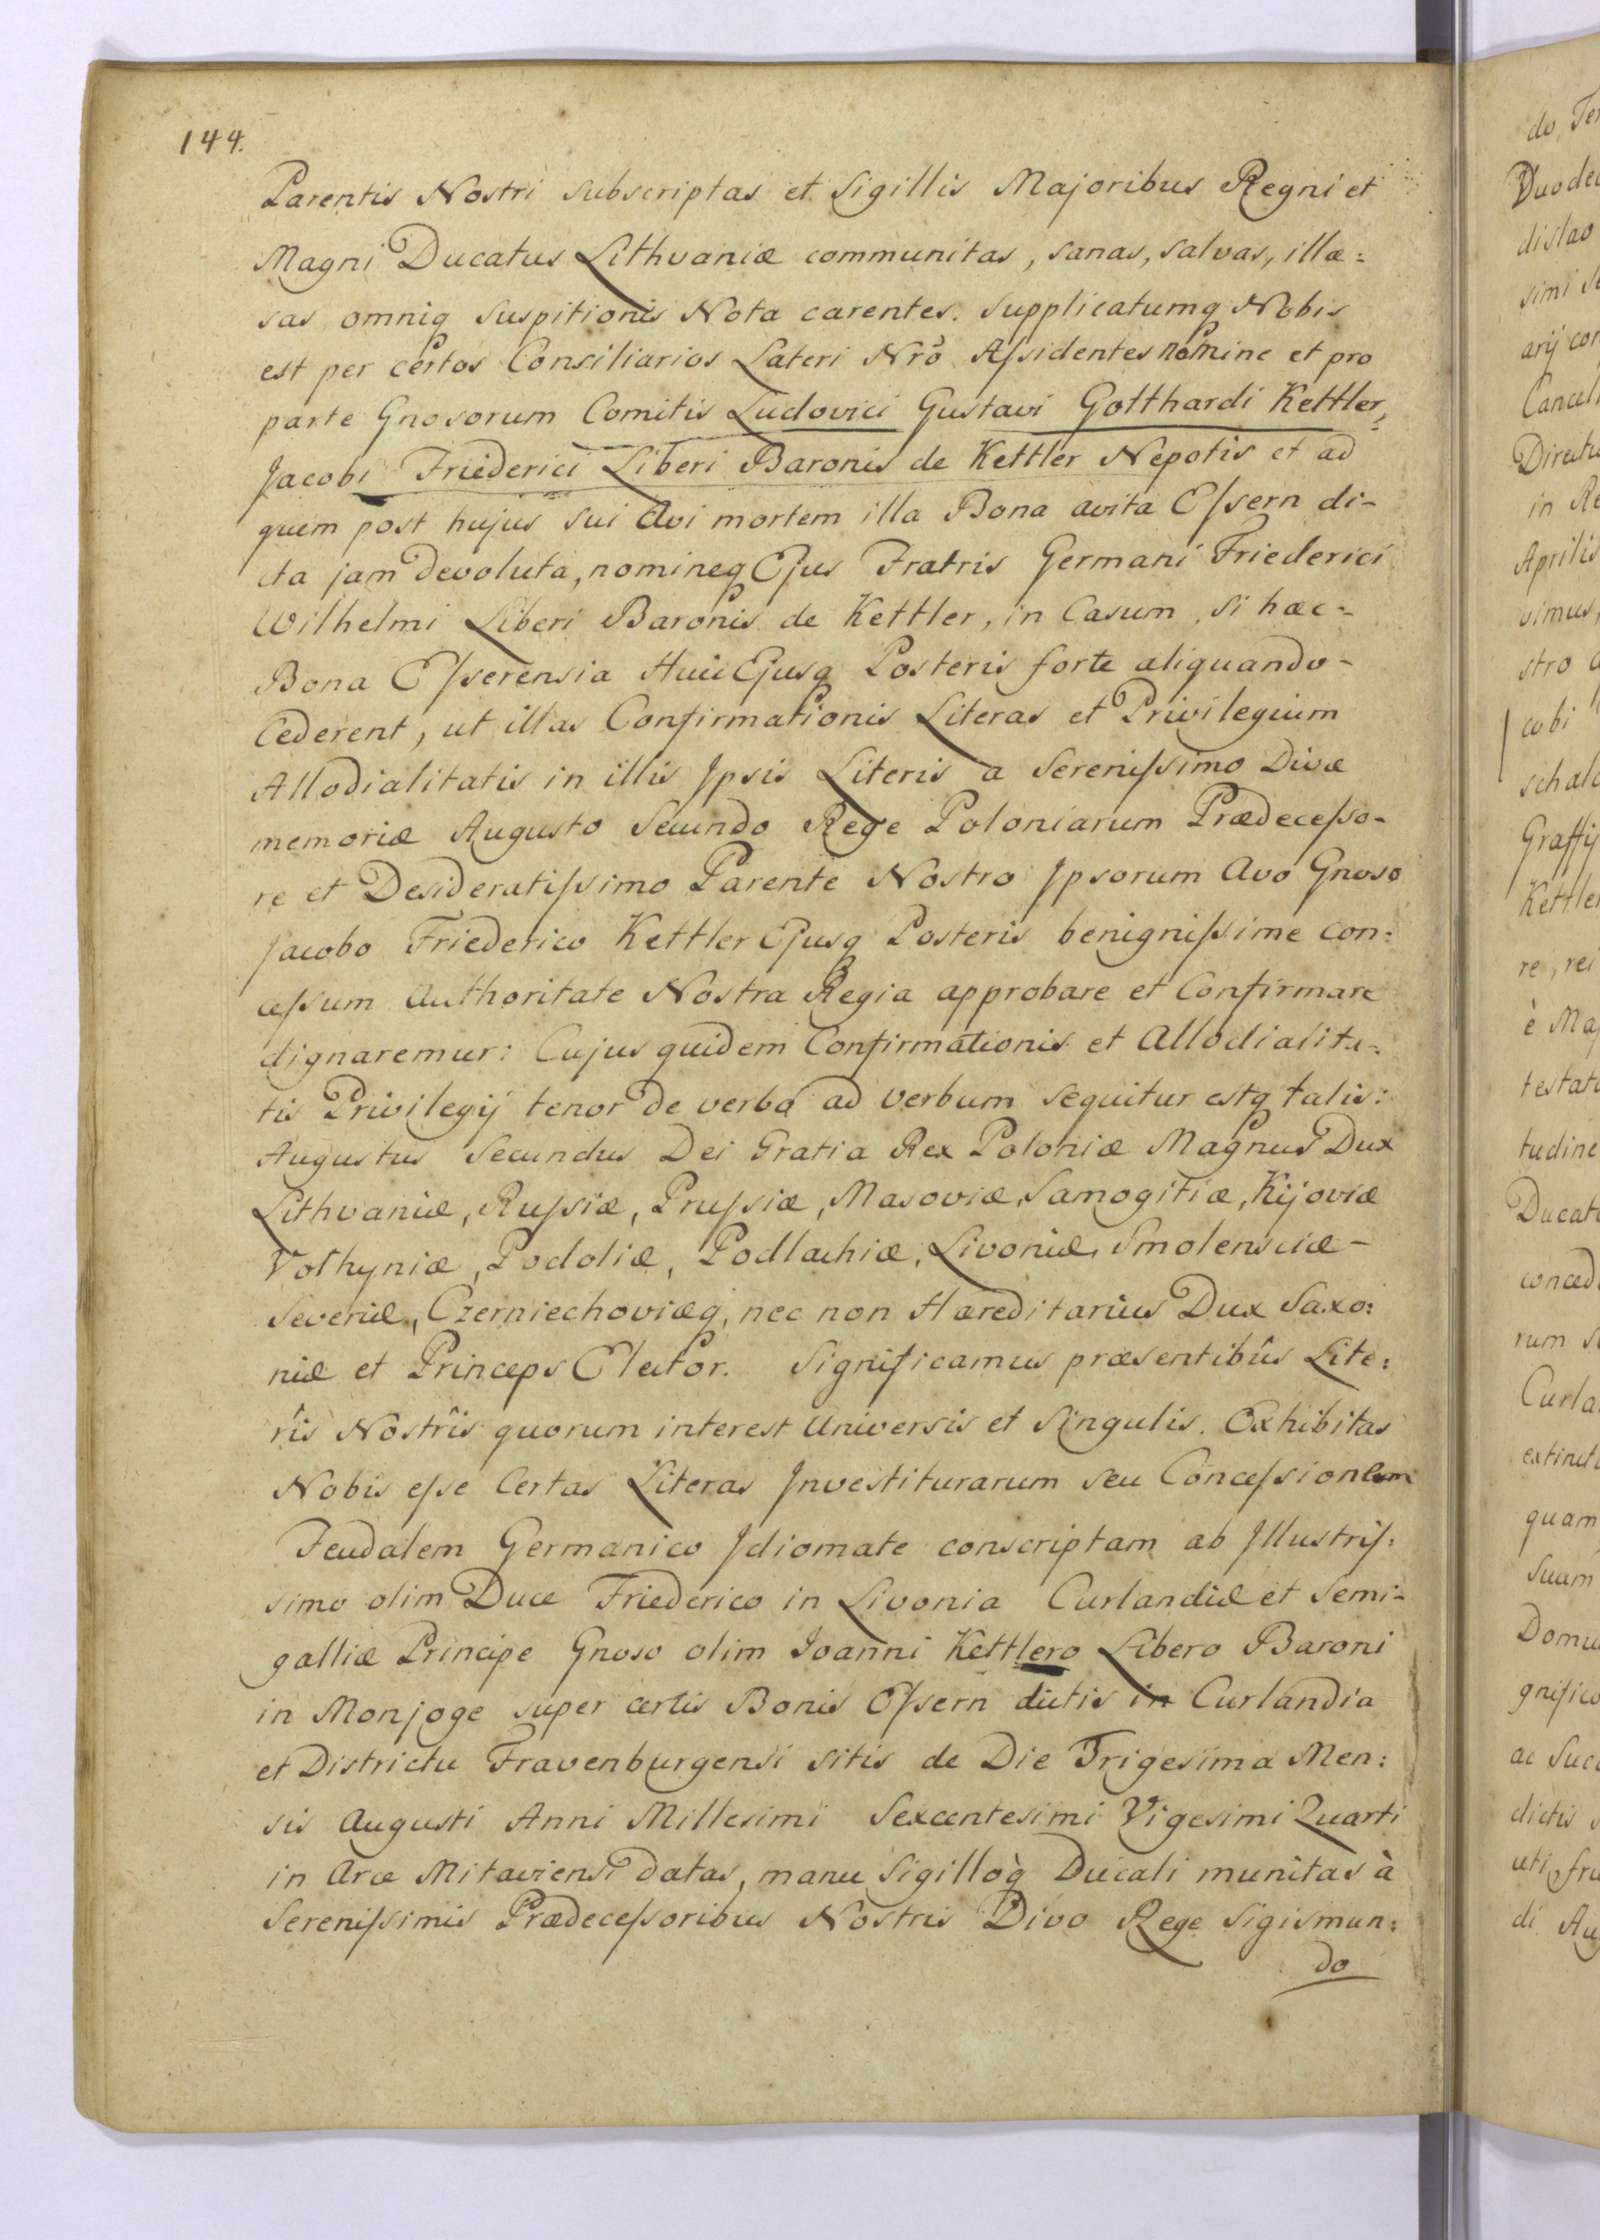 144.
Parentis Nostri subscriptas et Sigillis Majoribus Regni et
Magni Ducatus Lithvaniæ communitas, sanas, salvas, illæ:
sas omniq Suspitionis Nota carentes. Supplicatumq Nobis
est per certos Consiliarios Lateri Nrõ Aſsidentes nomine et pro
parte Gnosorum Comitis Ludovici Gustavi Gotthardi Kettler,
Jacobi Friederici Liberi Baronis de Kettler Nepotis et ad
quem post hujus sui Avi mortem illa Bona avita Eſsern di-
cta jam devoluta, nomineq Ejus Fratris Germani Friederici
Wilhelmi Liberi Baronis de Kettler, in Casum, si hæc-
Bona Eſserensia Huic Ejusq Posteris forte aliquando-
Cederent, ut illas Confirmationis Literas et Privilegium
Allodialitatis in illis Jpsis Literis a Sereniſsimo Divæ
memoriæ Augusto Secundo Rege Poloniarum Prædeceſso-
re et Desideratiſsimo Parente Nostro Jpsorum Avo Gnoso
Jacobo Friederico Kettler Ejusq Posteris benigniſsime con:
ceſsum Authoritate Nostra Regia approbare et Confirmare
dignaremur: Cujus quidem Confirmationis et Allodialita-
tis Privilegij tenor de verbo ad verbum sequitur estq talis:
Augustus Secundus Dei Gratia Rex Poloniæ Magnus Dux
Lithvaniæ, Ruſsiæ, Pruſsiæ, Masoviæ, Samogitiæ, Kijoviæ
Volhyniæ, Podoliæ, Podlachiæ, Livoniæ, Smolensciæ-
Severiæ, Czerniechoviæq, nec non Hæreditarius Dux Saxo:
niæ et Princeps Elector. Significamus præsentibûs Lite:
rîs Nostrîs quorum interest Universis et Singulis. Exhibitas
Nobis eſse Certas Literas Jnvestiturarum seu Conceſsionem
Feudalem Germanico Jdiomate conscriptam ab Jllustriſ:
simo olim Duce Friederico in Livonia Curlandiæ et Semi-
galliæ Principe Gnoso olim Joanni Kettlero Libero Baroni
in Monjoge super certis Bonis Eſsern dictis in Curlandia
et Districtu Fravenburgensi sitis de Die Trigesima Men:
sis Augusti Anni Millesimi Sexcentesimi Vigesimi Quarti
in Arce Mitaviensi datas, manu Sigilloq̀ Ducali munitas à
Sereniſsimis Prædeceſsoribus Nostris Divo Rege Sigismun:
do
do, Ter
Duode
dislao
simi Se
arij con
Cancell
Directu
in Re
Aprilis
vimus,
stro
cobi
schal
Graffij
Kettler
re, rei
è Ma
testat
tudine
Ducat
conced
rum
Curla
extinct
quam
Suam
Domu
gnifico
ac Succ
dictis
uti fru
di Au